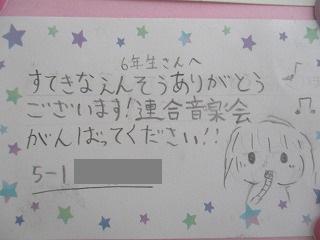 6年生さんへ
すてきなえんそうありがとう
ございます!連合音楽会
がんばってください!!
5-1